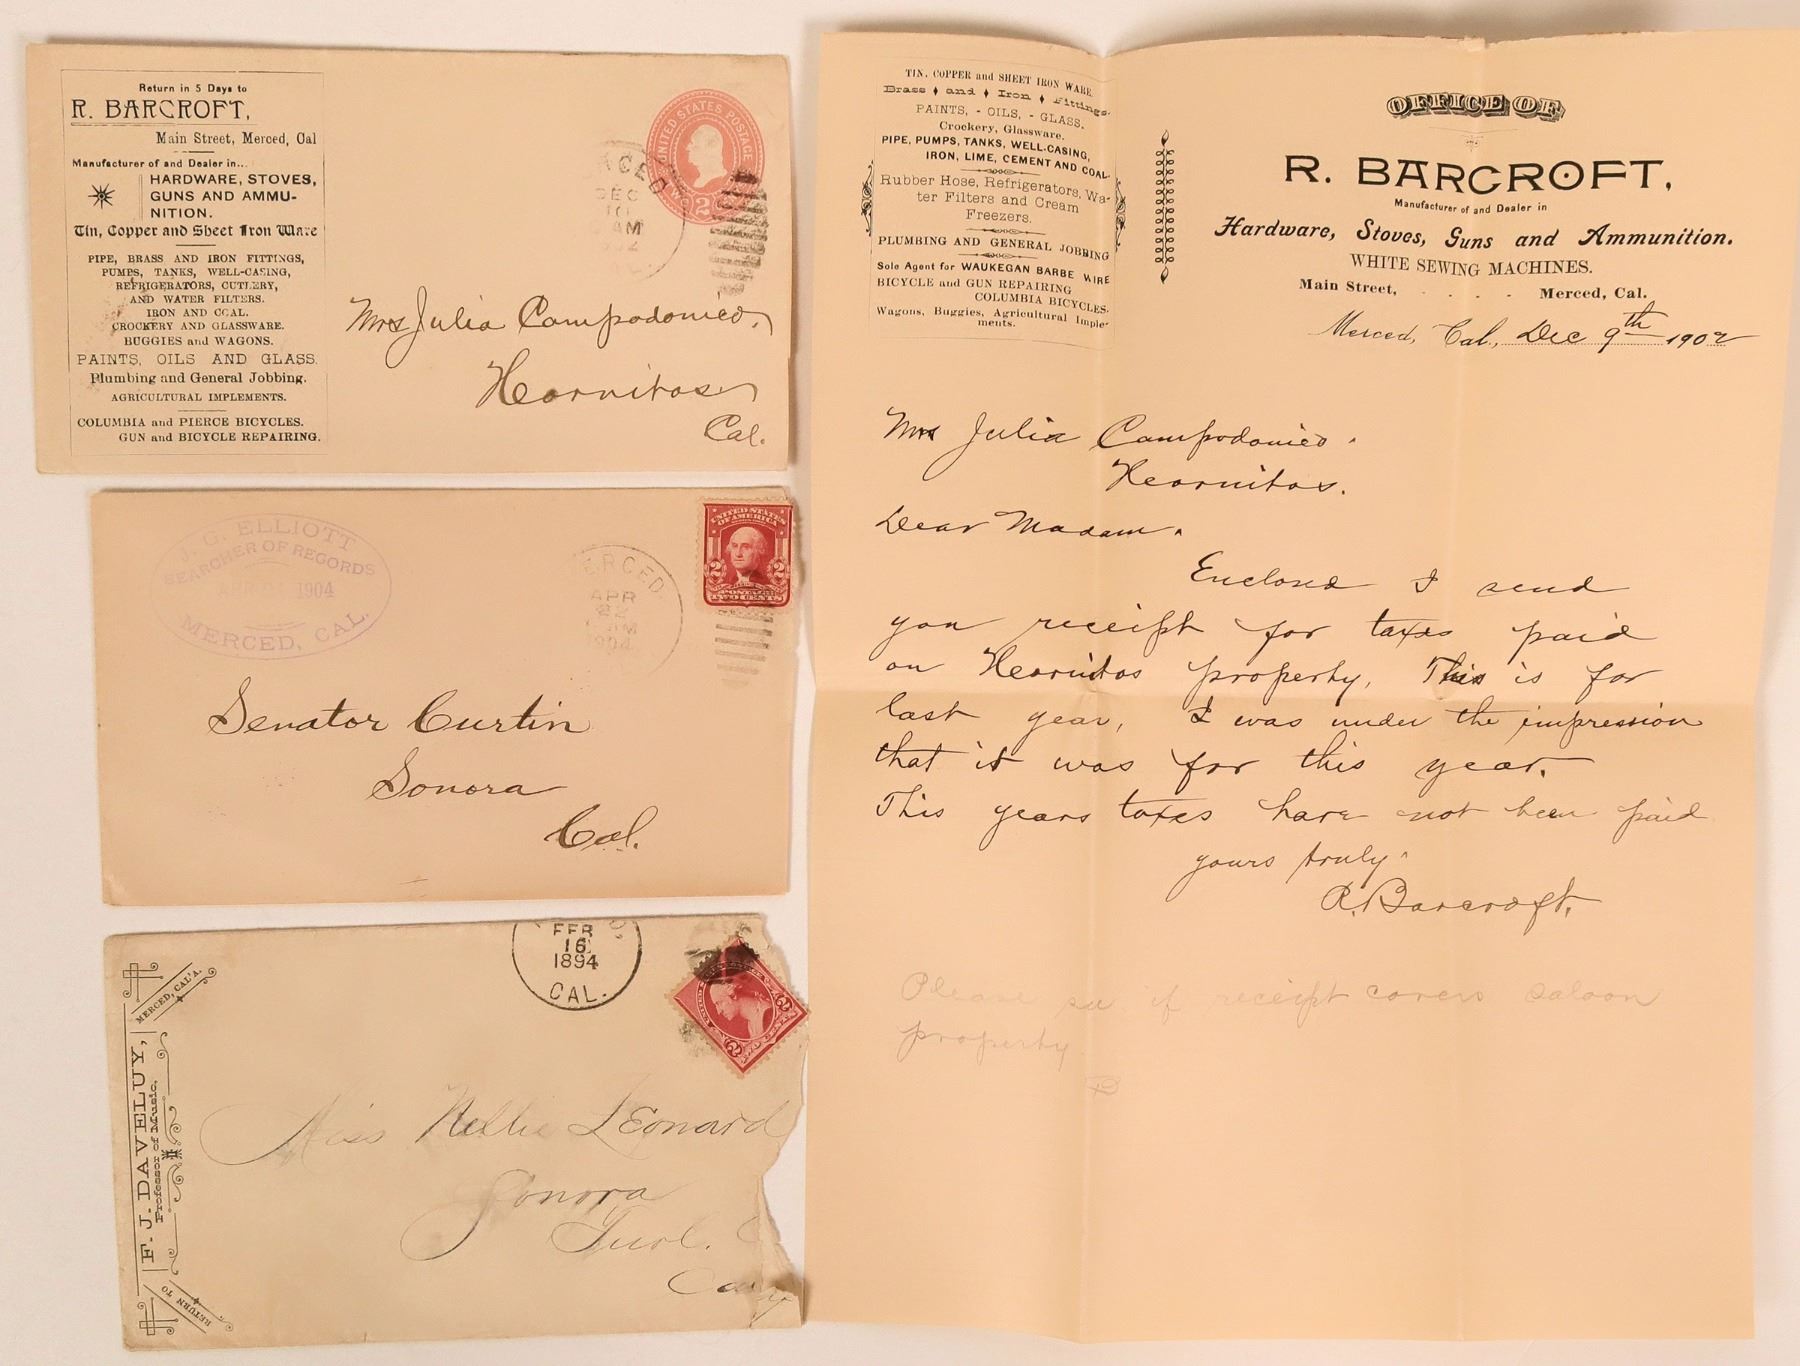 Return in 5 Days to
R. BARCROFT,
Main Street, Merced, Cal
Manufacturer of and Dealer in...
HARDWARE, STOVES,
GUNS AND AMMU-
NITION.
Tin, Copper and Sheet Iron Ware
PIPE, BRASS AND IRON FITTINGS,
PUMPS, TANKS, WELL-CASING,
REFRIGERATORS, CUTLERY,
AND WATER FILTERS.
IRON AND COAL.
CROCKERY AND GLASSWARE.
BUGGIES and WAGONS.
PAINTS, OILS AND GLASS.
Plumbing and General Jobbing.
AGRICULTURAL IMPLEMENTS.
COLUMBIA and PIERCE BICYCLES.
GUN and BICYCLE REPAIRING.
UNITED STATES POSTAGE
2
DEC
10
AM
Mrs Julia Campodonico,
Hornitos
Cal.
J. G. ELLIOTT
SEARCHER OF RECORDS
APR 1904
MERCED, CAL.
ERCED.
APR
22
1904
UNITED STATES
OF AMERICA
2 2
POSTAGE
TWO CENTS
Senator Curtin
Sonora
Cal.
FEB
16
1894
CAL.
MERCED, CAL'A.
F. J. DAVELUY,
Professor of Music,
RETURN TO
2 2
Miss Nellie Leonard
Sonora
Tuol. C
TIN, COPPER and SHEET IRON WARE.
Brass and Iron Fittings.
PAINTS, - OILS, - GLASS.
Crockery, Glassware.
PIPE, PUMPS, TANKS, WELL-CASING,
IRON, LIME, CEMENT AND COAL.
Rubber Hose, Refrigerators, Wa-
ter Filters and Cream
Freezers.
PLUMBING AND GENERAL JOBBING
Sole Agent for WAUKEGAN BARBE WIRE
BICYCLE and GUN REPAIRING
COLUMBIA BICYCLES.
Wagons, Buggies, Agricultural Imple-
ments.
OFFICE OF
R. BARCROFT,
Manufacturer of and Dealer in
Hardware, Stoves, Guns and Ammunition.
WHITE SEWING MACHINES.
Main Street, . . . . Merced, Cal.
Merced, Cal., Dec 9th 1902
Mrs Julia Campodonico.
Hornitos.
Dear Madam.
Enclosed I send
you receipt for taxes paid
on Hornitos property, This is for
last year, I was under the impression
that it was for this year.
This years taxes have not been paid
yours truly.
R. Barcroft.
Please see if receipt covers saloon
property